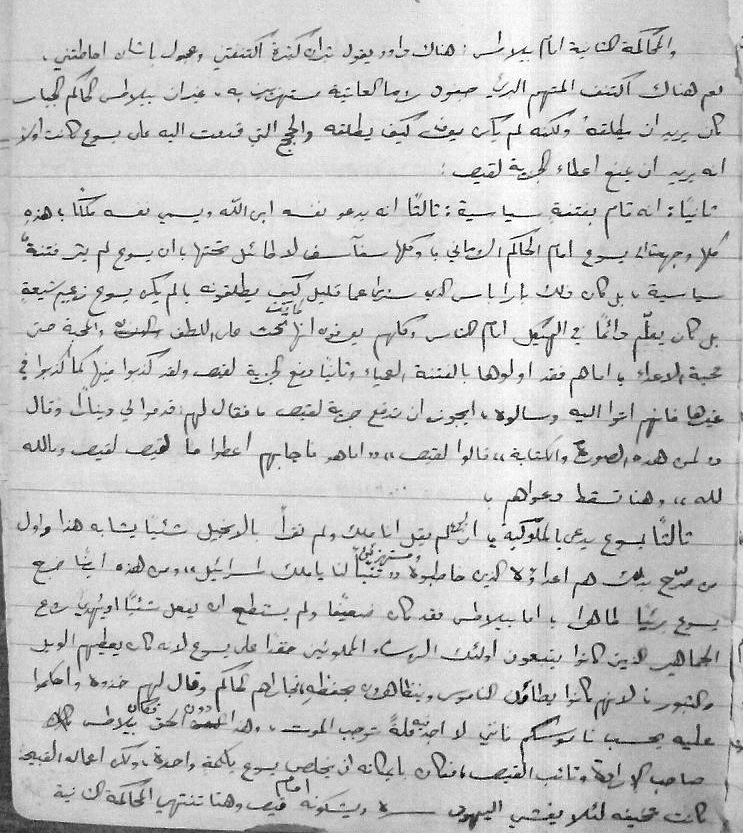 والمحاكمة الثانية امام بيلاطس: هناك داود يقول ثيران كثيرة اكتنفتني وعجول باشان احاطتني،
نعم هناك اكتنف المتهم البريء جنود روما العاتية مستهزئين به، غير ان بيلاطس الحاكم الجبار
كان يريد ان يطلقه ولكنه لم يكن يعرف كيف يطلقه والحجج التي قدمت اليه على يسوع كانت اولاً
انه يريد ان يمنع اعطاء الجزية لقيصر:
ثانياً: انه قام بفتنة سياسية: ثالثاً انه يدعو نفسه ابن الله ويسمي نفسه ملكاً، هذه
كلها وجهت الى يسوع امام الحاكم الروماني، وكلها سفاسف لا طائل تحتها، ان يسوع لم يثر فتنة
سياسية، بل كان ذلك باراباس الذي سنرى عما قليل كيف يطلقونه، لم يكن يسوع زعيم شيعة
بل كان يعلّم دائماً في الهيكل امام الناس وكلهم يعرفون انها كانت تحث على اللطف والمحبة حتى
محبة الاعداء، اما هم فقد اولوها بالفتنة العمياء وثانياً دفع الجزية لقيصر ولقد كذبوا فيها كما كذبوا في
غيرها فانهم اتوا اليه وسالوه، ايجوز ان تدفع جزية لقيصر، فقال لهم: قدموا لي ديناراً وقال
"لمن هذه الصورة والكتابة"، قالوا لقيصر، اما هو فاجابهم "اعطوا ما لقيصر لقيصر وما لله
لله"، وهنا تسقط دعواهم،
ثالثاً يسوع يدعي بالملوكية، ان يسوع لم يقل انا ملك ولم نقرأ بالانجيل شيئاً يشابه هذا واول
من صرّح بذلك هم اعداؤه الذين خاطبوه ومستهزئين "تنبأ لنا يا ملك اسرائيل"، ومن هذه ايضاً خرج
يسوع بريئاً طاهراً، اما بيلاطس فقد كان ضعيفاً ولم يستطع ان يعمل شيئاً او يهدئ روع
الجماهير الذين كانوا يتبعون اولئك الرؤساء المملوئين حقداً على يسوع لانه كان يعطيهم الويل
والثبور، لانهم كانوا يطاؤن الناموس ويتظاهرون بحفظه، فجاراهم الحاكم وقال لهم خذوه واحكموا
عليه بحسب ناموسكم فاني لا اجد فيه علة توجب الموت، وهذا دون الحق فكان بيلاطس
صاحب الارادة ونائب القيصر، فكان بامكانه ان يخلص يسوع بكلمة واحدة، ولكن اعماله القبيحة
كانت تخيفه لئلا يفشي اليهود سره ويشكونه امام قيصر وهنا تنتهي المحاكمة الثانية